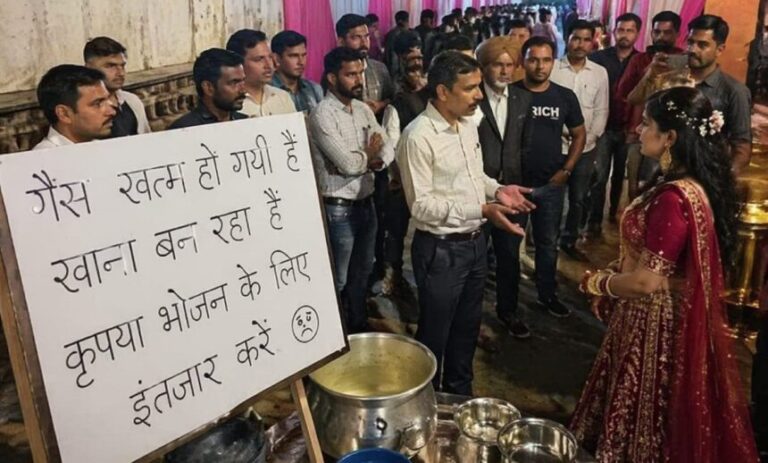 गैस खत्म हो गयी हैं
खाना बन रहा हैं
कृपया भोजन के लिए
इंतजार करें
RICH